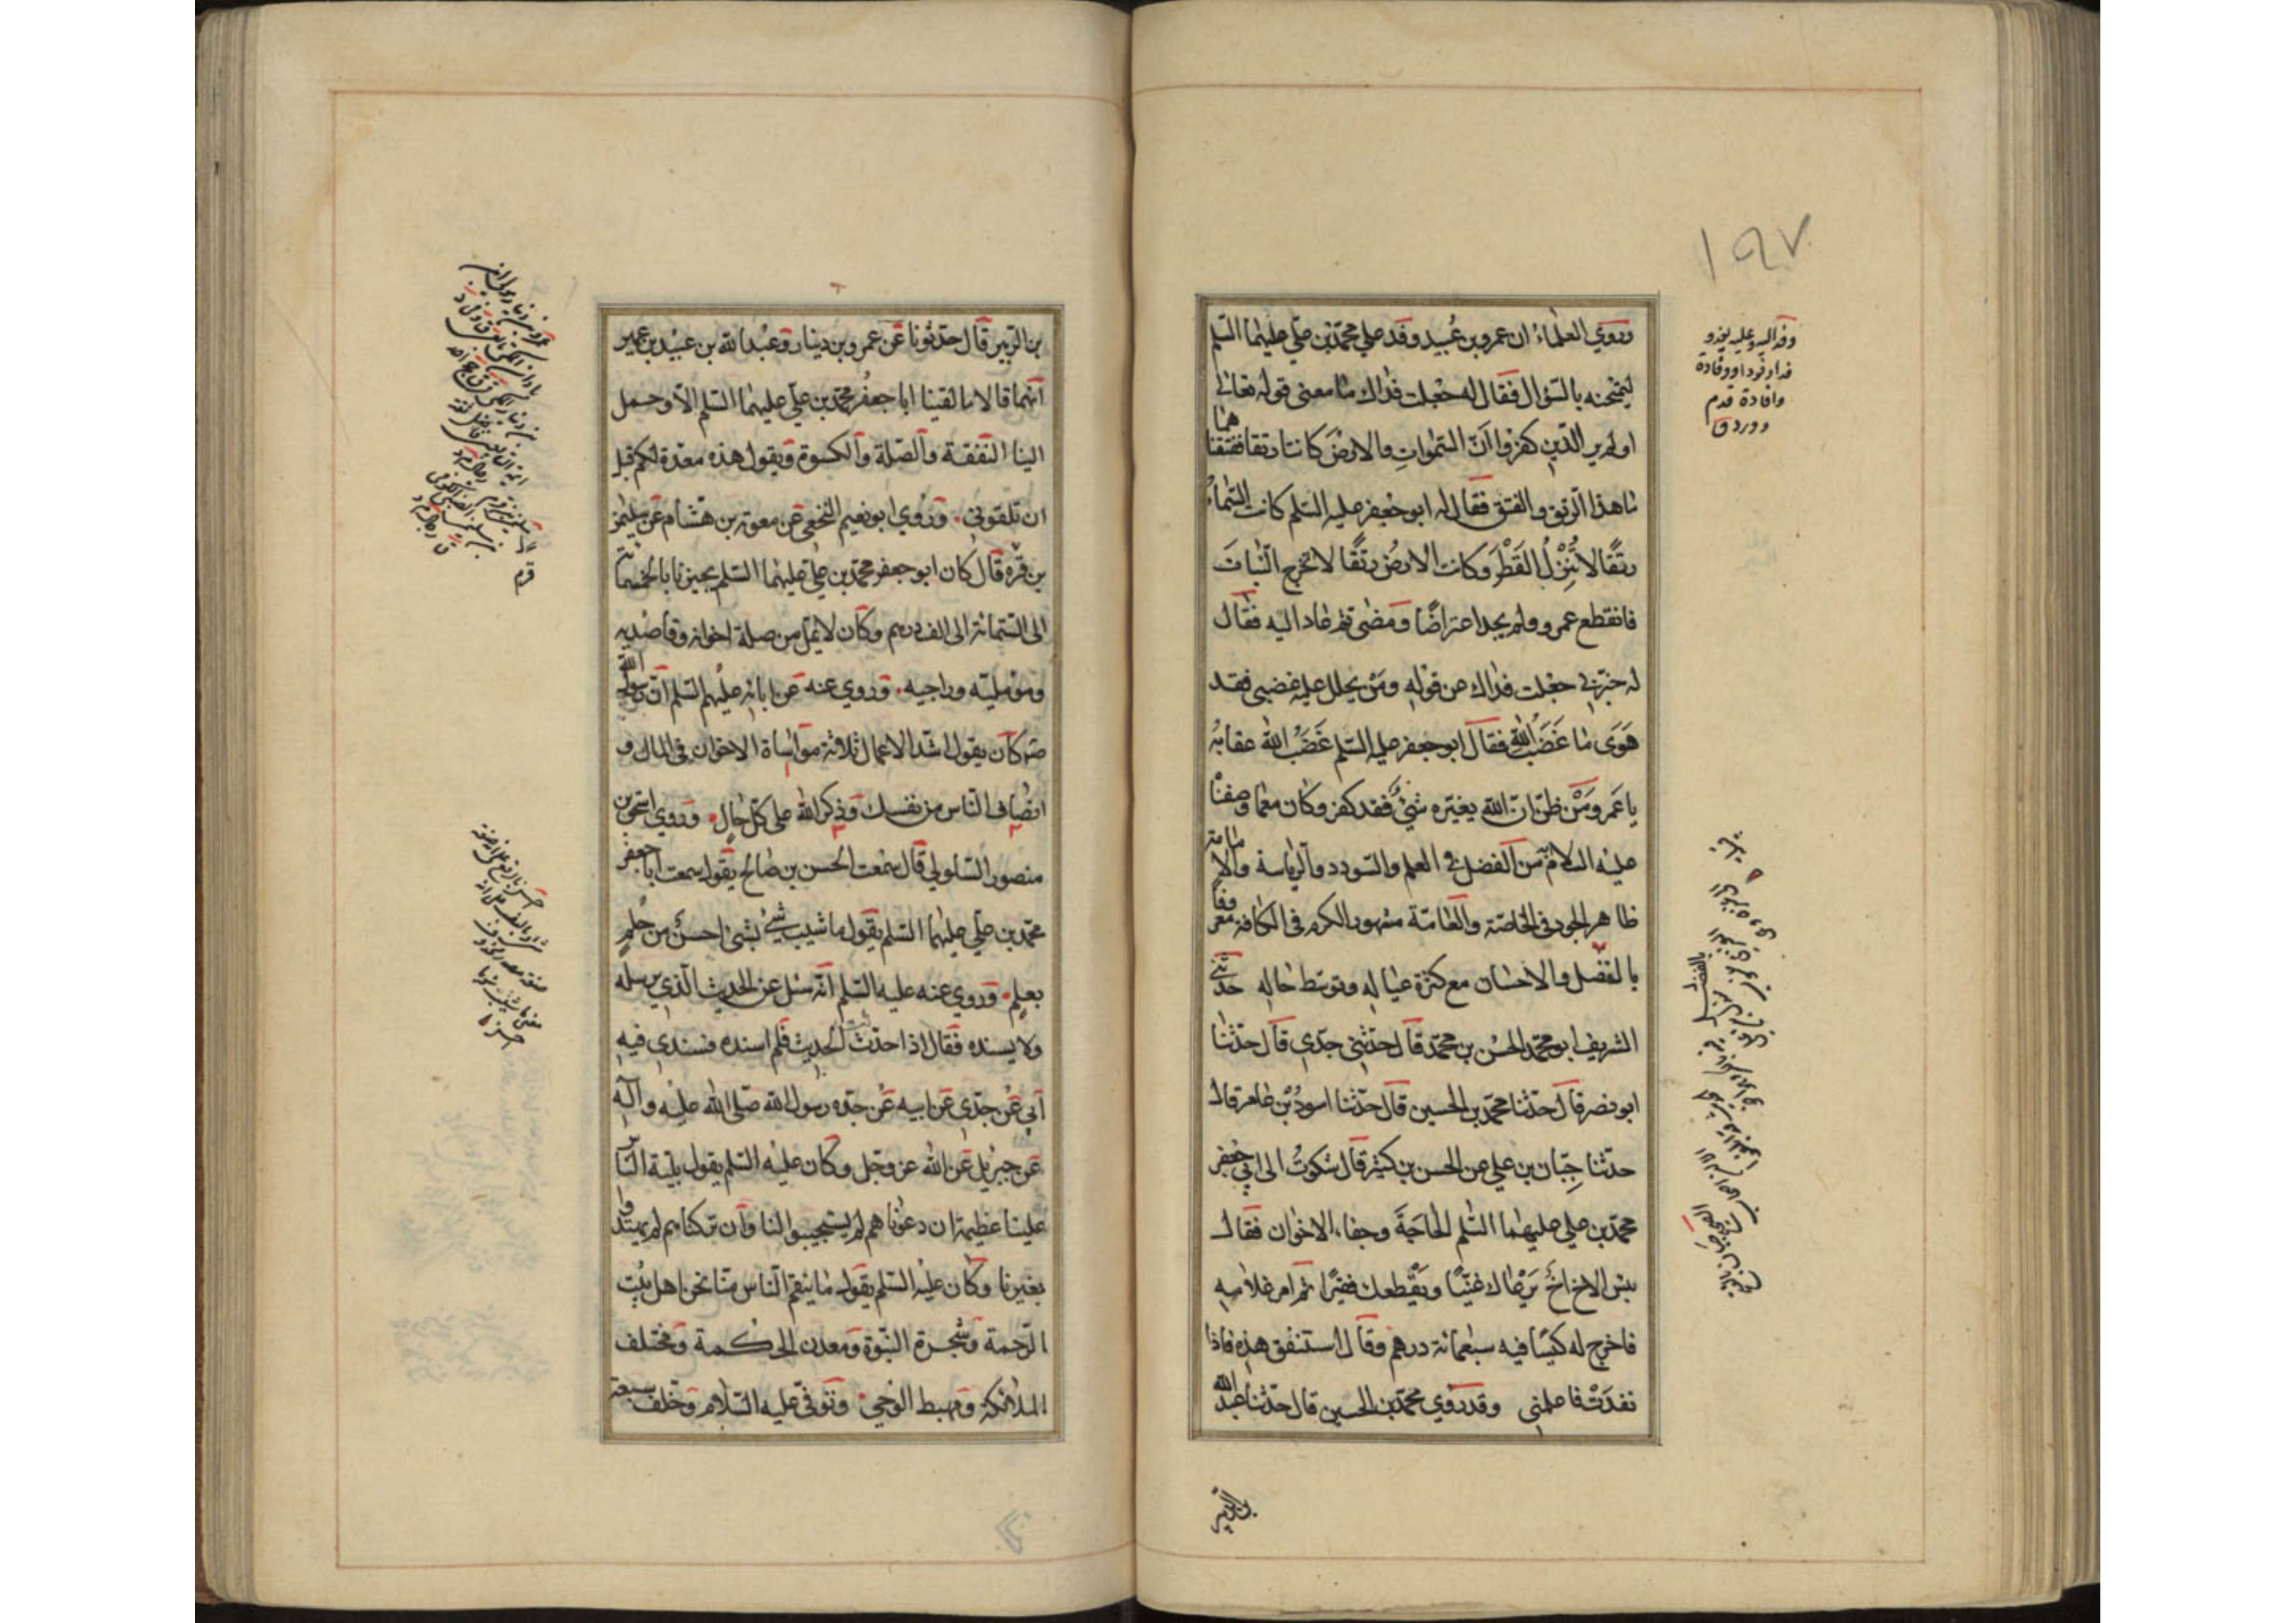 ١٩٧
وروي العلماءُ ان عمرو بن عُبيد وفد علي محمّد بن عليّ عليهما السّلم
ليمتحنه بالسّؤال فقال له جُعلت فداك ما معنى قوله تعالى
اولم ير الّذين كفروا انّ السّموات والارضَ كانتا رتقا ففتقناهما
ما هذا الرّتق والفتق فقال له ابو جعفر عليه السّلم كانت السّماءُ
رتقًا لا تُنْزِلُ القَطْرَ وكانت الارضُ رتقًا لا تخرج النّباتَ
فانقطع عمرو ولم يجد اعتراضًا ومضى ثم عاد اليه فقال
له خبّرني جعلت فداك عن قوله ومَنْ يحلل عليه غضبي فقد
هَوَى ما غَضَبُ الله فقال ابو جعفر عليه السّلم غَضَبُ الله عقابهُ
يا عَمرو ومَنْ ظنّ انّ الله يغيّره شيءٌ فقد كفر وكان مع ما وصفناْ
عليه السلام من الفضل في العلم والسّودد والرّياسة والامامة
ظاهر الجود في الخاصّة والعامّة مشهور الكرم في الكافة معروفًا
بالفضل والاحسان مع كثرة عياله وتوسّط حاله حدّثني
الشريف ابو محمّد الحسن بن محمّد قال حدّثني جدّي قال حدّثنا
ابو نصر قال حدّثنا محمّد بن الحسين قال حدّثنا اسودُ بْن عامر قال
حدّثنا حِبّان بن علي عن الحسن بن كثير قال شكوتُ الى ابي جعفر
محمّد بن علي عليهما السّلم الحاجَةَ وجفاء الاخوان فقال
بئس الاخ اخٌ يَرْعاك غنيًّا ويَقْطعك فقيرًا ثم امر غلامه
فاخرج له كيسًا فيه سبعمائة درهم وقال استنفق هذه فاذا
نفدَتْ فاعلمني وقد روي محمّد بن الحسين قال حدّثنا عبد الله
بن الزبير
وفد اليه وعليه يفد و
فدا وفودا ووفادة
وافادة قدم
وورد ق
بن الزّبير قال حدّثونا عن عمرو بن دينار وعبد الله بن عبيد بن عمير
انّهما قالا ما لقينا ابا جعفر محمّد بن علي عليهما السّلم الّا وحمل
الينا النّفقة والصّلة والكسوة ويقول هذه معدّة لكم قبل
ان تلقوني وروي ابو نعيم النخعي عن معوية بن هشام عن سليمن
بن قرْم قال كان ابو جعفر محمّد بن علي عليهما السّلم يجيزنا بالخمسمائة
الى السّتمائة الى الف درهم وكان لا يملّ من صلة اخوانه وقاصديه
ومؤمليّه وراجيه وروي عنه عن ابائه عليهم السّلم انّ رسول الله
صلى كان يقول اشدّ الاعمال ثلاثة مواساة الاخوان في المال و
انصاف النّاس من نفسك وذكر الله على كلّ حالٍ وروي اسحق بن
منصور السّلولي قال سمعت الحسن بن صالح يقول سمعت ابا جعفر
محمّد بن علي عليهما السّلم يقول ما شيب شيءٌ بشيءٍ احسنُ من حُلمٍ
بعلم وروي عنه عليه السّلم انّه سئل عن الحديث الّذي يرسله
ولا يسنده فقال اذا حدّثت الحديث فلم اسنده فسندي فيه
ابي عن جدّي عن ابيه عن جدّه رسول الله صلّى الله عليه وآله
عن جبرئيل عن الله عز وجل وكان عليه السّلم يقول بليّة النّاس
علينا عظيمة ان دعوناهم لم يستجيبوا لنا وان تركناهم لم يهتدوا
بغيرنا وكان عليه السّلم يقول ما ينقم النّاس منّا نحن اهل بيت
الرّحمة وشجرة النّبوّة ومعدن الحكمة ومختلف
الملائكة ومهبط الوحي وتوفّي عليه السّلام وخلّف سبعة